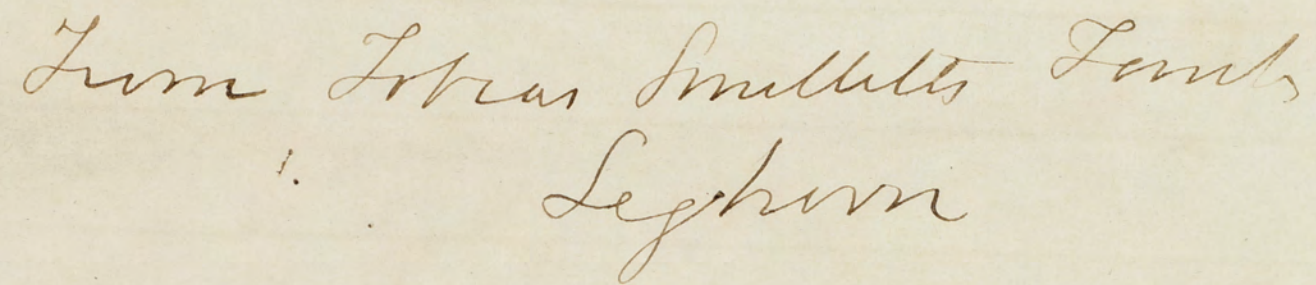 From Tobias Smolletts Tomb
Leghorn